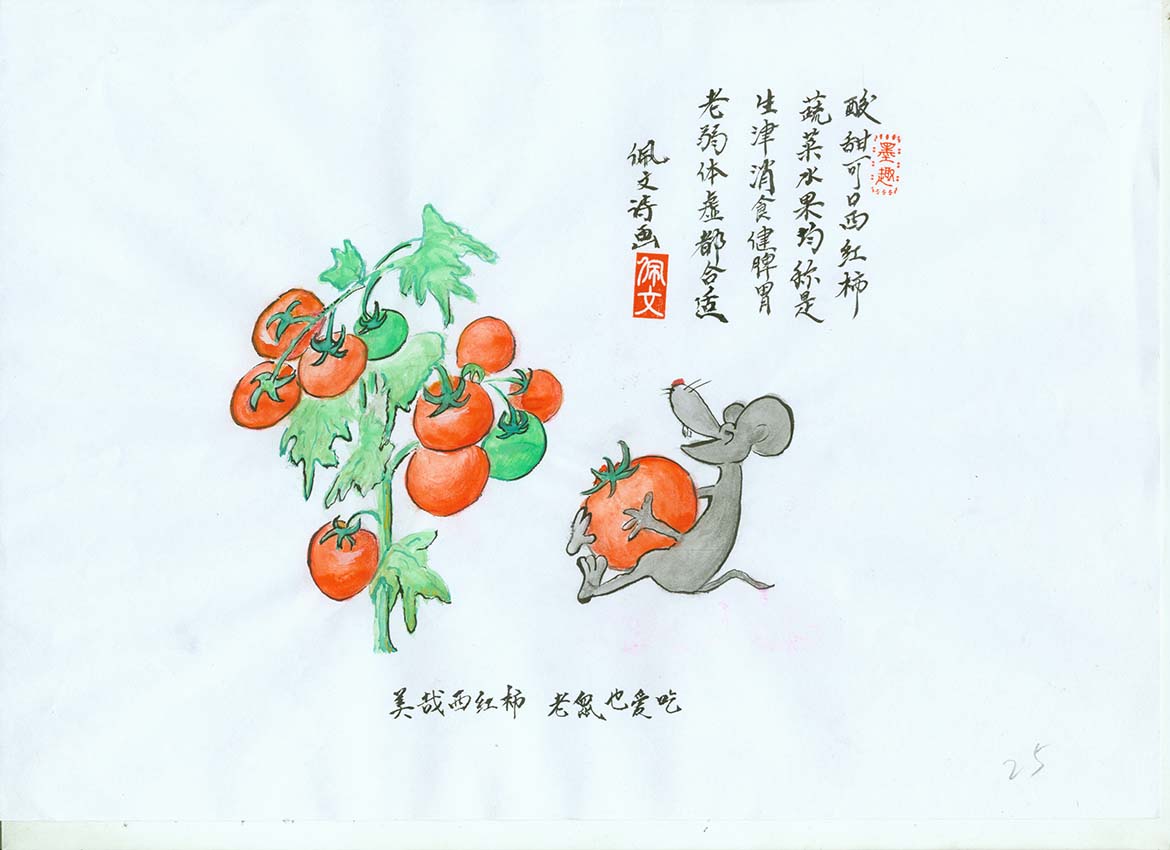 酸甜可口西红柿
蔬菜水果均称是
生津消食健脾胃
老弱体虚都合适
佩文诗画
佩文
墨趣
美哉西红柿 老鼠也爱吃
25